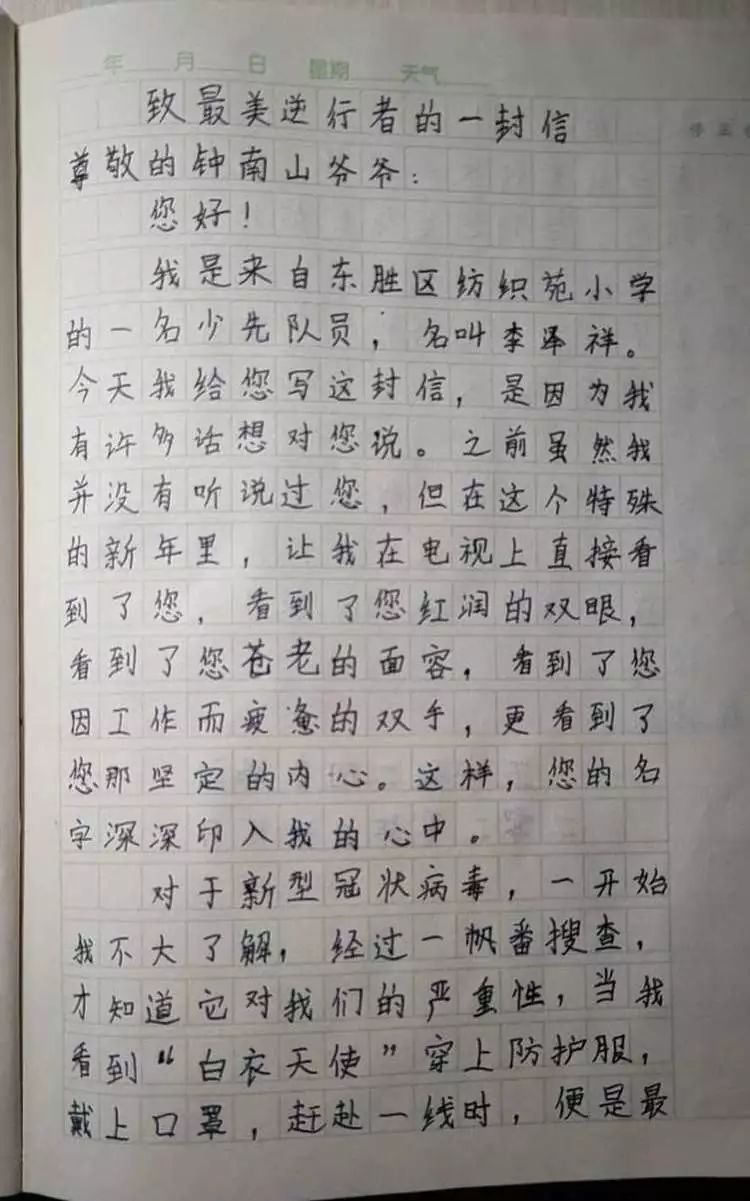 年 月 日 星期 天气
致最美逆行者的一封信
尊敬的钟南山爷爷：
您好！
我是来自东胜区纺织苑小学
的一名少先队员，名叫李泽祥。
今天我给您写这封信，是因为我
有许多话想对您说。之前虽然我
并没有听说过您，但在这个特殊
的新年里，让我在电视上直接看
到了您，看到了您红润的双眼，
看到了您苍老的面容，看到了您
因工作而疲惫的双手，更看到了
您那坚定的内心。这样，您的名
字深深印入我的心中。
对于新型冠状病毒，一开始
我不大了解，经过一帆番搜查，
才知道它对我们的严重性，当我
看到“白衣天使”穿上防护服，
戴上口罩，赶赴一线时，便是最